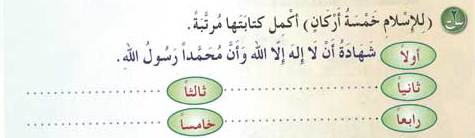 س٢ (لِلْإِسْلَامِ خَمْسَةُ أَرْكَانٍ) أَكْمِل كِتَابَتَهَا مُرَتَّبَةً.
أولاً شَهَادَةُ أَنْ لَا إِلهَ إِلَّا الله وَأَنَّ مُحَمَّداً رَسُولُ اللهِ.
ثانياً .................... ثالثاً ....................
رابعاً .................... خامساً ....................